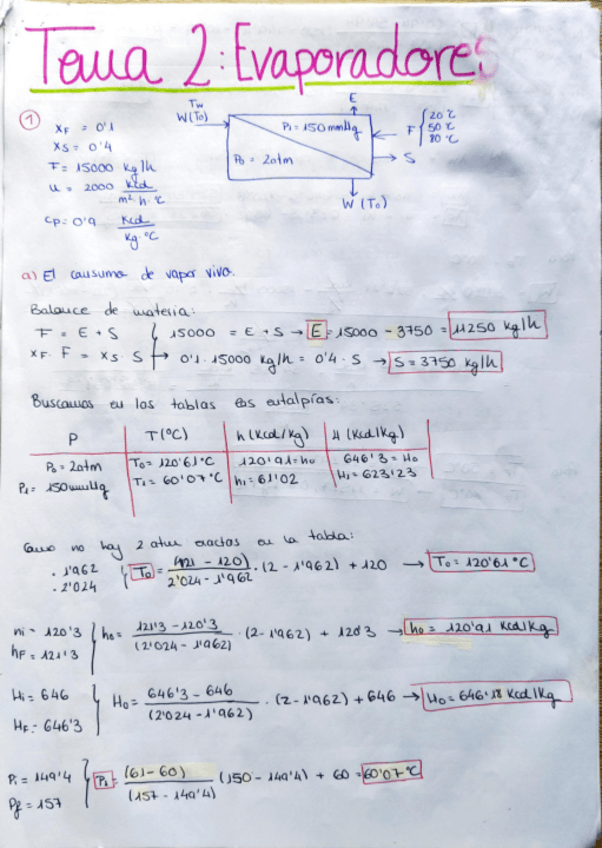 Tema 2: Evaporadores
① xF = 0'1
xS = 0'4
F = 15000 kg/h
u = 2000 Kcal/m² h °C
Cp = 0'9 Kcal/Kg·°C
Tw
W(To)
E
P1 = 150mmHg
Po = 2atm
F { 20°C
50°C
80°C
S
W (To)
a) El consumo de vapor vivo.
Balance de materia:
F = E + S } 15000 = E + S → E = 15000 - 3750 = 11250 kg/h
xF · F = xS · S → 0'1 · 15000 kg/h = 0'4 · S → S = 3750 kg/h
Buscamos en las tablas las entalpías:
P T(°C) h (Kcal/Kg) H (Kcal/Kg)
Po = 2atm To = 120'61°C 120'91 = ho 646'3 = Ho
P1 = 150mmHg T1 = 60'07°C h1 = 61'02 H1 = 623'23
Como no hay 2 atm exactas en la tabla:
· 1'962
· 2'024 } To = (121 - 120)/(2'024 - 1'962) · (2 - 1'962) + 120 → To = 120'61°C
hi = 120'3
hF = 121'3 } ho = (121'3 - 120'3)/(2'024 - 1'962) · (2 - 1'962) + 120'3 → ho = 120'91 Kcal/Kg
Hi = 646
HF = 646'3 } Ho = (646'3 - 646)/(2'024 - 1'962) · (2 - 1'962) + 646 → Ho = 646'18 Kcal/Kg
Pi = 149'4
Pf = 157 } P1 = (61 - 60)/(157 - 149'4) (150 - 149'4) + 60 = 60'07°C